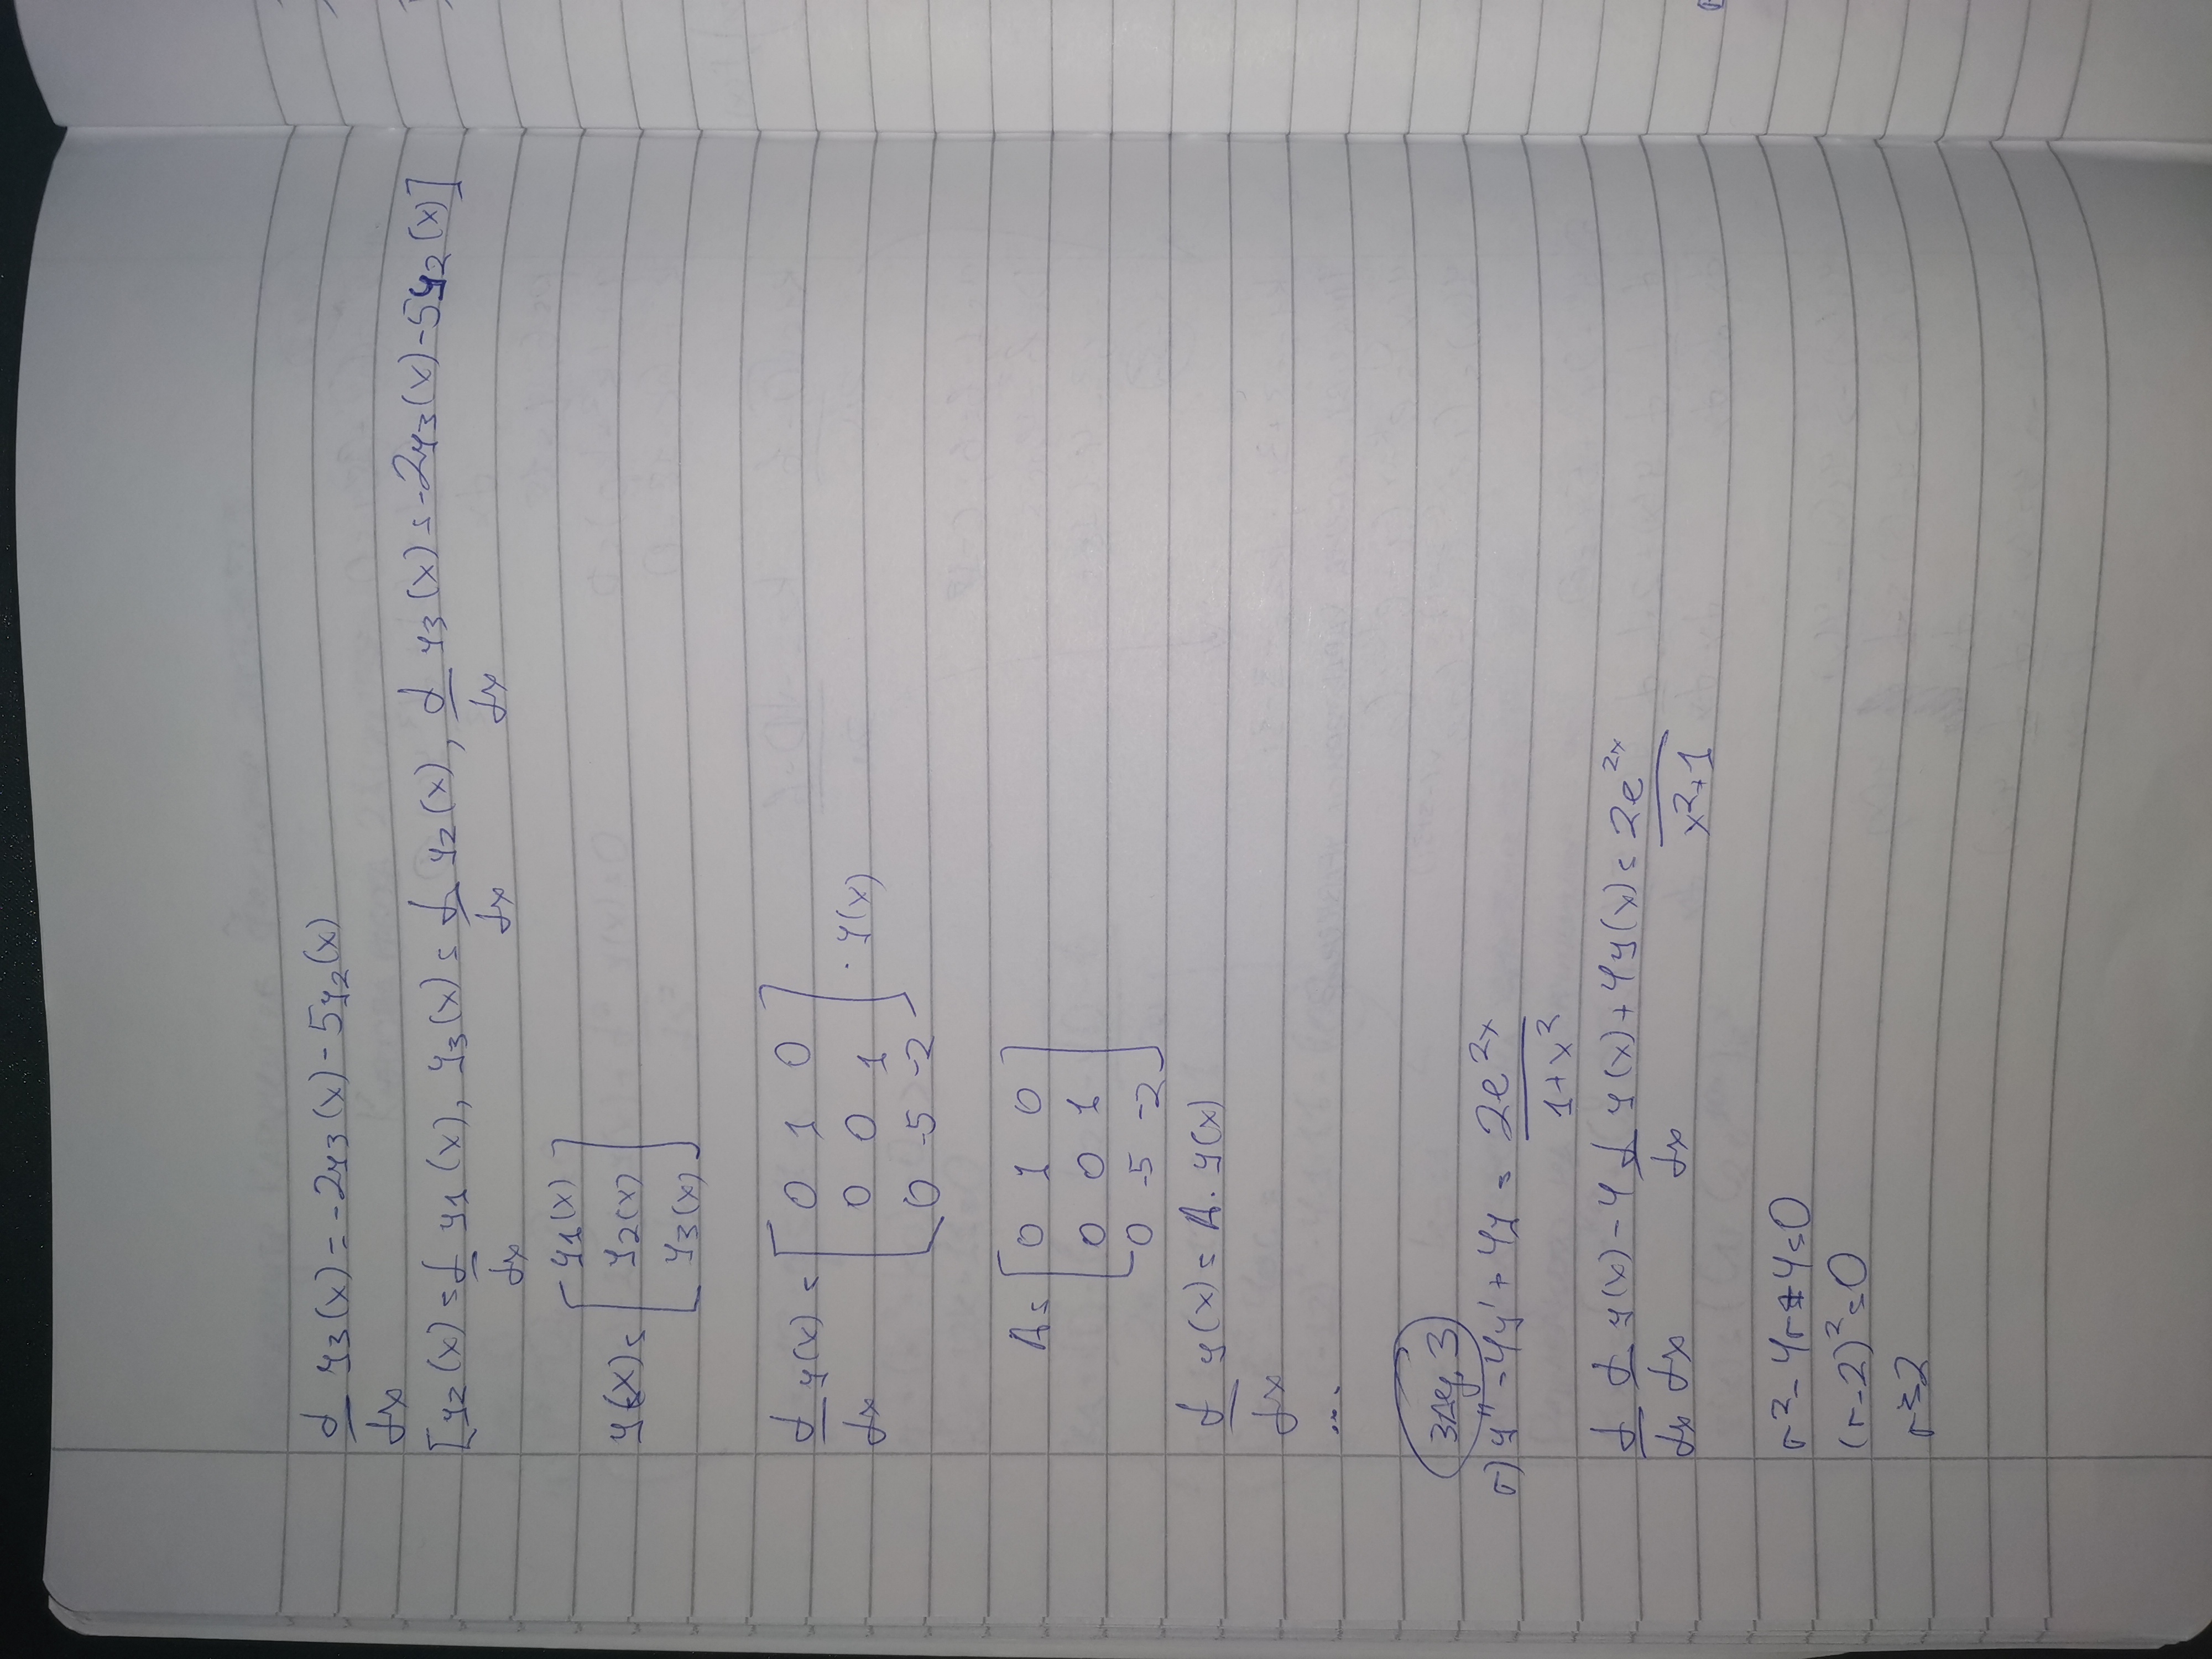 d/dx y3(x) = -2y3(x) - 5y2(x)
[y2(x) = d/dx y1(x), y3(x) = d/dx y2(x), d/dx y3(x) = -2y3(x) - 5y2(x)]
y(x) = [ y1(x)
y2(x)
y3(x) ]
d/dx y(x) = [ 0 1 0
0 0 1
0 -5 -2 ] · y(x)
A = [ 0 1 0
0 0 1
0 -5 -2 ]
d/dx y(x) = A. y(x)
...
ЗАД. 3
г) y'' - 4y' + 4y = 2e^2x / 1+x^2
d/dx d/dx y(x) - 4 d/dx y(x) + 4y(x) = 2e^2x / x^2+1
r^2 - 4r + 4 = 0
(r-2)^2 = 0
r = 2